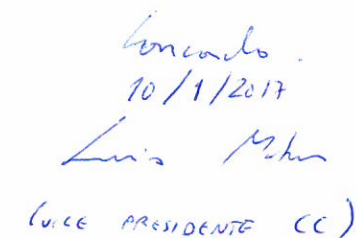 Concordo.
10/1/2017
Luis
(VICE PRESIDENTE CC)